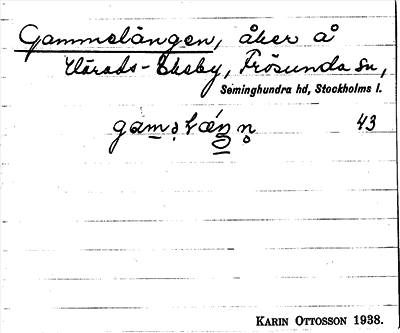 Gammelängen, åker å
Vårads-Ekeby, Frösunda sn,
Seminghundra hd, Stockholms l.
43
KARIN OTTOSSON 1938.